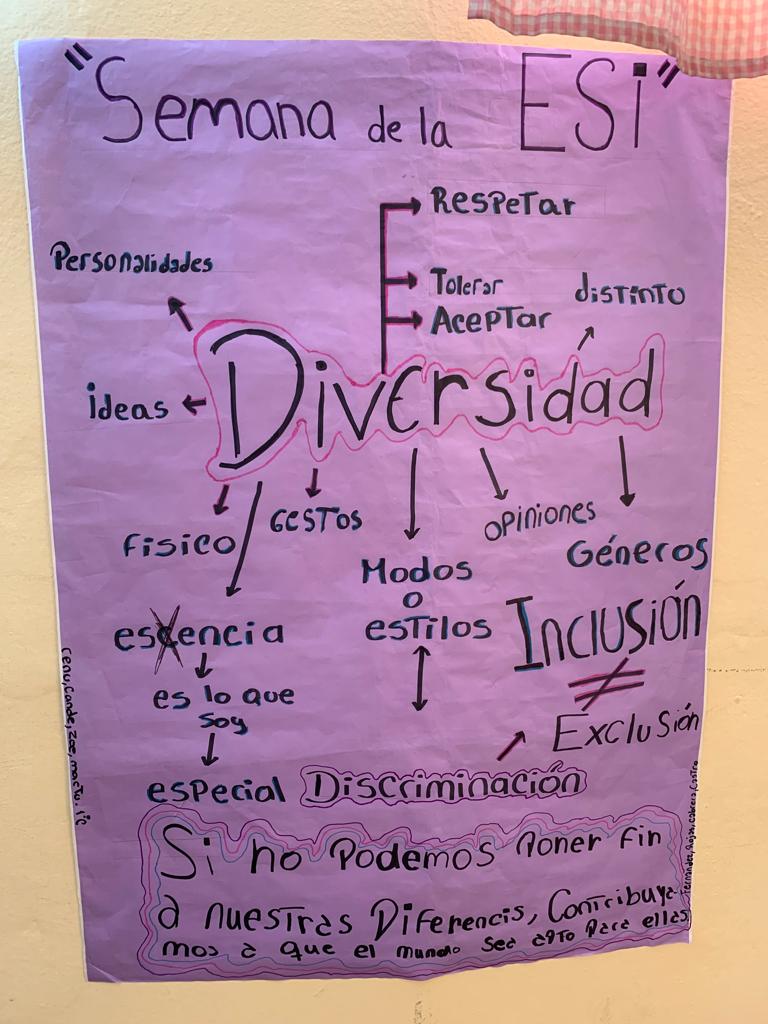 "Semana de la ESi"
Respetar
Personalidades
Tolerar
distinto
Aceptar
Diversidad
ideas
Gestos
opiniones
Fisico
Géneros
Modos
o
estilos
esCencia
Inclusión
≠
es lo que
soy
Exclusión
especial
Discriminación
Si no Podemos Poner Fin
a nuestras Diferencis, Contribuya-
mos a que el mundo sea apto Para ellas